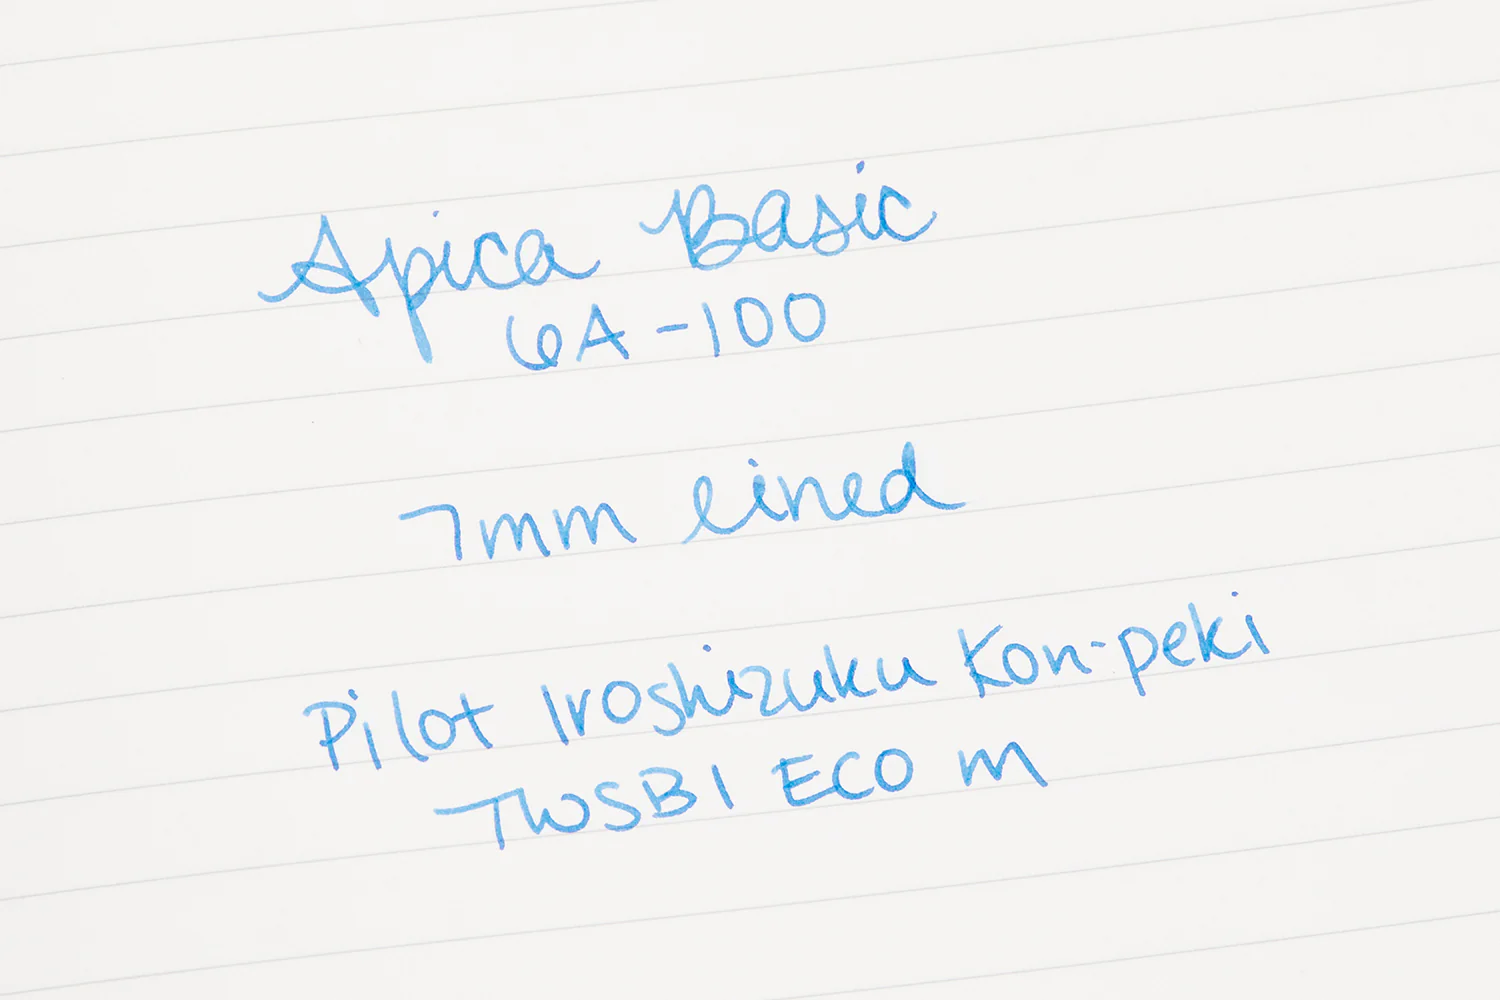 Apica Basic
6A-100
7mm lined
Pilot Iroshizuku Kon-peki
TWSBI ECO M